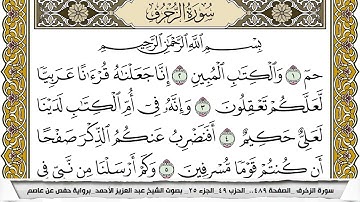 سُورَةُ الزُّخْرُفِ
بِسْمِ اللَّهِ الرَّحْمَٰنِ الرَّحِيمِ
حمٓ ١ وَالْكِتَابِ الْمُبِينِ ٢ إِنَّا جَعَلْنَاهُ قُرْءَانًا عَرَبِيًّا
لَّعَلَّكُمْ تَعْقِلُونَ ٣ وَإِنَّهُ فِىٓ أُمِّ الْكِتَابِ لَدَيْنَا
لَعَلِىٌّ حَكِيمٌ ٤ أَفَنَضْرِبُ عَنكُمُ الذِّكْرَ صَفْحًا
أَن كُنتُمْ قَوْمًا مُّسْرِفِينَ ٥ وَكَمْ أَرْسَلْنَا مِن نَّبِىٍّ فِى
سورة الزخرف _الصفحة ٤٨٩_ الحزب ٤٩_الجزء ٢٥_ بصوت الشيخ عبد العزيز الأحمد_برواية حفص عن عاصم